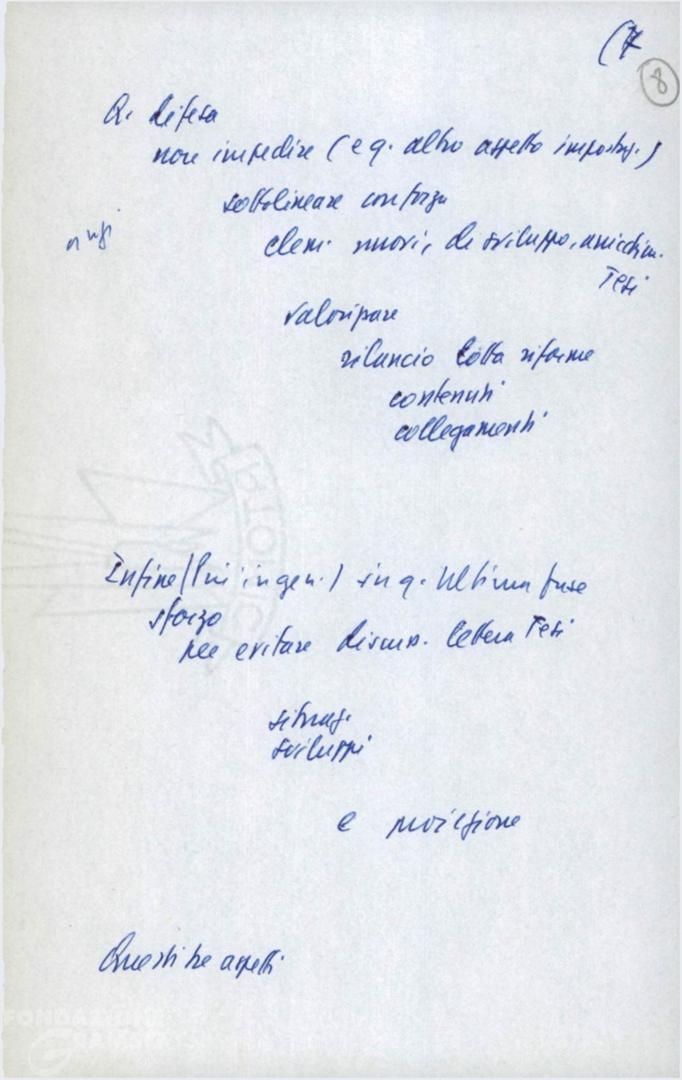 (7
8
Q. difesa
non impedire (e q. altro aspetto impostaz.)
sottolineare con forza
anzi
elem. nuovi, di sviluppo, arricchim.
Tesi
valorizzare
rilancio lotta riforme
contenuti
collegamenti
Infine (più in gen.) in q. ultima fase
sforzo
per evitare discuss. lettera Tesi
situaz.
sviluppi
e
Questi tre aspetti
FONDAZIONE
GRAMSCI